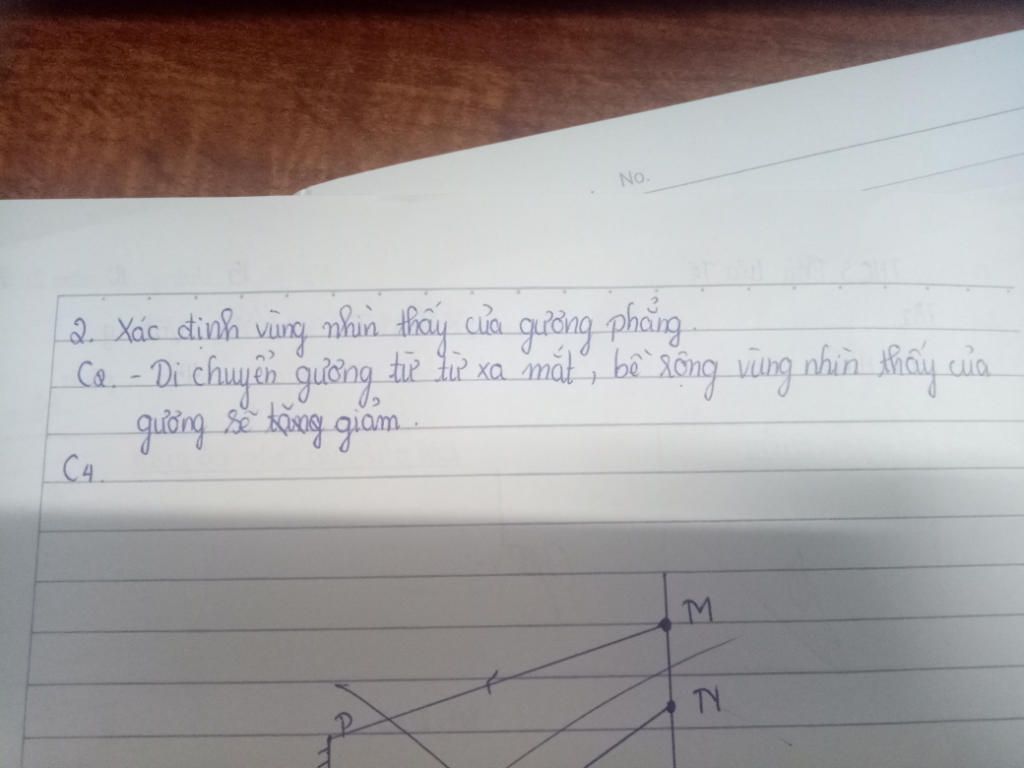 No.
2. Xác định vùng nhìn thấy của gương phẳng.
C2. - Di chuyển gương từ từ xa mắt, bề rộng vùng nhìn thấy của
gương sẽ tăng giảm.
C4.
M
N
P